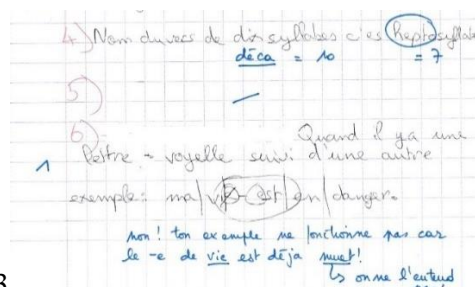 4) Nom du vers de dix syllabes c'es heptosyllabe
déca = 10 = 7
5)
6)
Quand il ya une
lettre = voyelle suivi d'une autre
1
exemple: ma| vie est| en| danger.
non! ton exemple ne fonctionne pas car
le -e de vie est déja muet!
↳ on ne l'entend
3